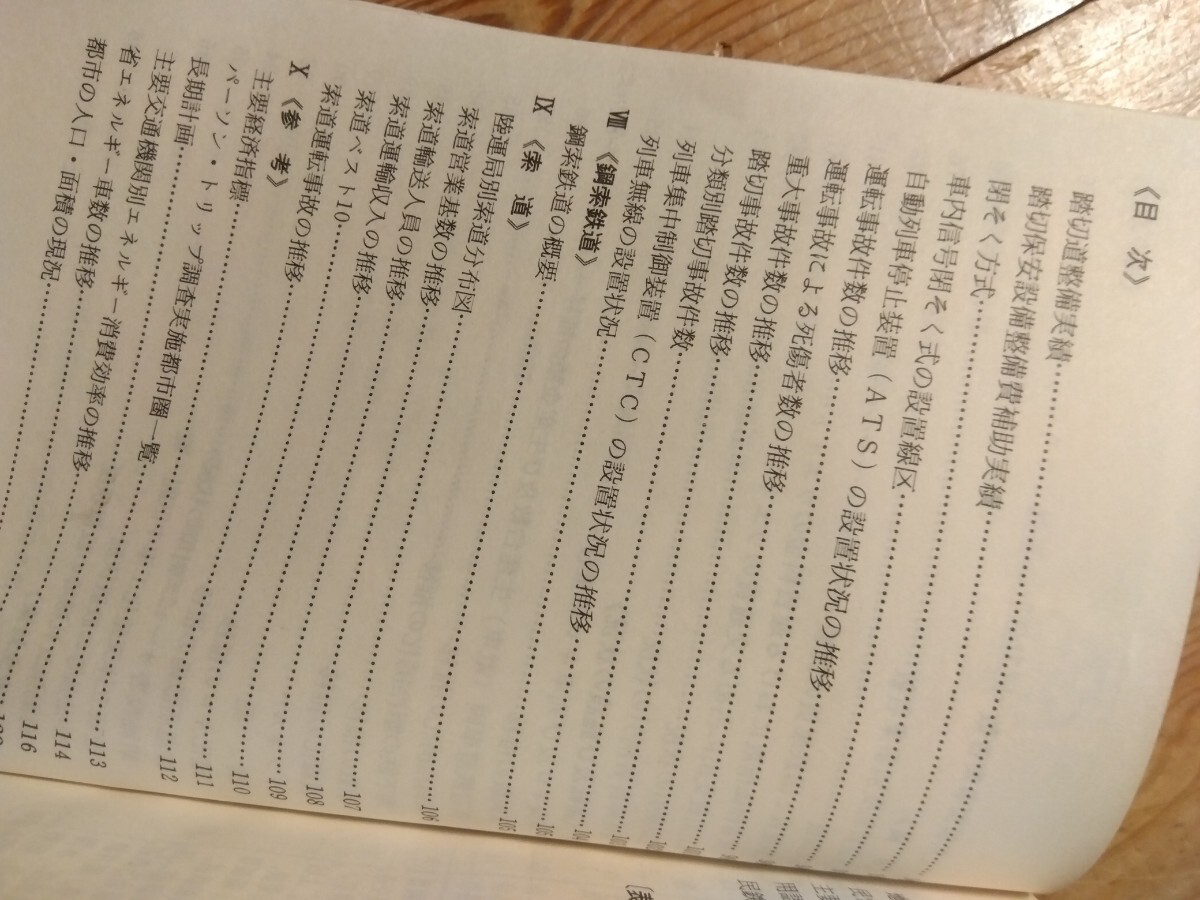 《目 次》
踏切道整備実績
踏切保安設備整備費補助実績
閉そく方式
車内信号閉そく式の設置線区
自動列車停止装置（ATS）の設置状況の推移
運転事故件数の推移
運転事故による死傷者数の推移
重大事故件数の推移
踏切事故件数の推移
分類別踏切事故件数
列車集中制御装置（CTC）の設置状況の推移
列車無線の設置状況
Ⅷ 《鋼索鉄道》
鋼索鉄道の概要
Ⅸ 《索 道》
陸運局別索道分布図
索道営業基数の推移
索道輸送人員の推移
索道運輸収入の推移
索道ベスト10
索道運転事故の推移
Ⅹ 《参 考》
主要経済指標
パーソン・トリップ調査実施都市圏一覧
長期計画
主要交通機関別エネルギー消費効率の推移
省エネルギー車数の推移
都市の人口・面積の現況
104
105
105
106
107
108
109
110
111
112
113
114
116